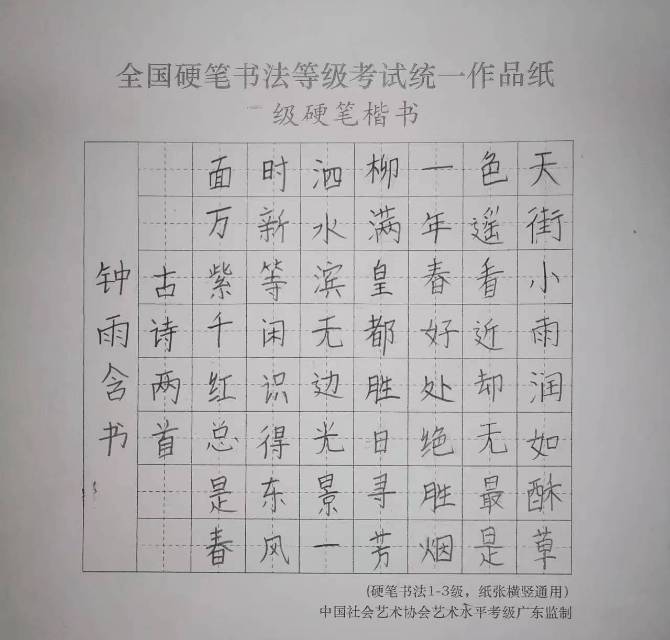 全国硬笔书法等级考试统一作品纸
一级硬笔楷书
天街小雨润如酥草
色遥看近却无最是
一年春好处绝胜烟
柳满皇都胜日寻芳
泗水滨无边光景一
时新等闲识得东风
面万紫千红总是春
古诗两首
钟雨含书
(硬笔书法1-3级，纸张横竖通用)
中国社会艺术协会艺术水平考级广东监制